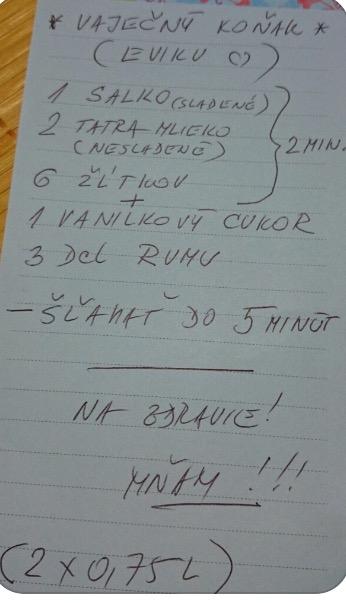 * VAJEČNÝ KOŇAK *
(LEVIKU ♡)
1 SALKO (SLADENÉ)
2 TATRA MLIEKO
(NESLADENÉ)
} 2 MIN.
6 ŽĹTKOV
+
1 VANILKOVÝ CUKOR
3 Dcl RUMU
- ŠĽAHAŤ DO 5 MINÚT
NA ZDRAVIE!
MŇAM !!!
(2 x 0,75 L)